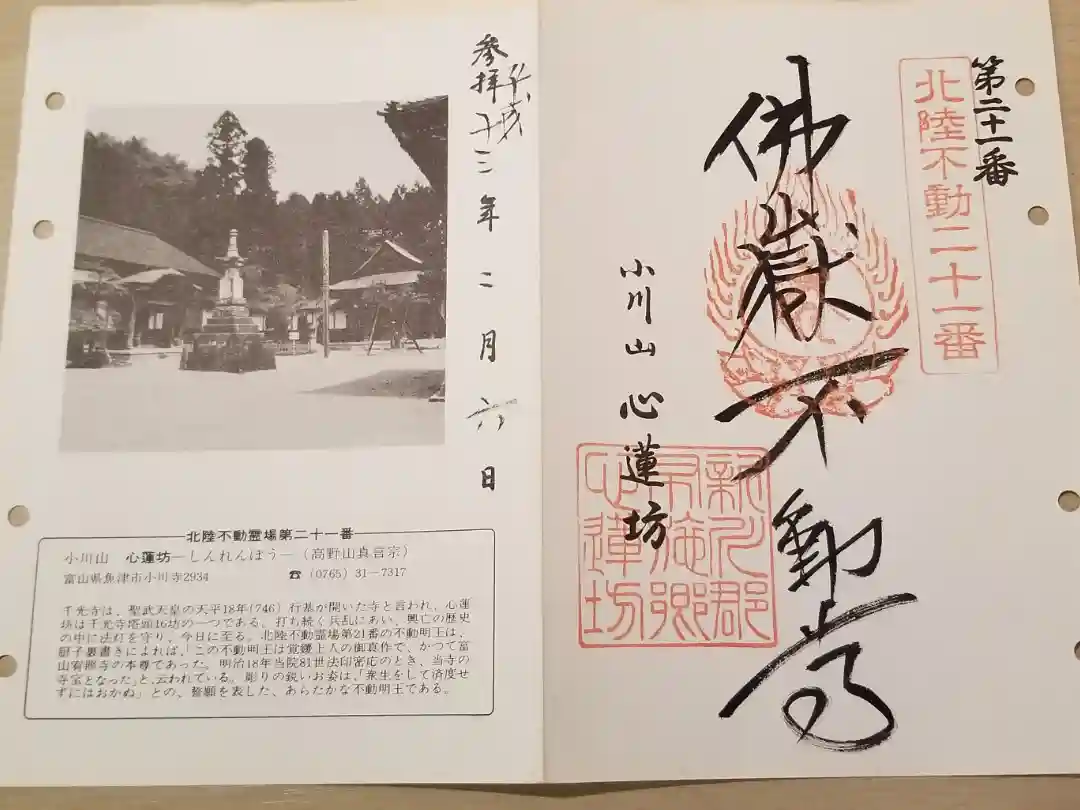 第二十一番
北陸不動二十一番
佛嶽不動尊
小川山 心蓮坊
参拝 平成
十三年二月六日
北陸不動霊場第二十一番
小川山 心蓮坊―しんれんぼう―(高野山真言宗)
富山県魚津市小川寺2934 ☎(0765)31-7317
千光寺は、聖武天皇の天平18年(746)行基が開いた寺と言われ、心蓮
坊は千光寺塔頭16坊の一つである。打ち続く兵乱にあい、興亡の歴史
の中に法灯を守り、今日に至る。北陸不動霊場第21番の不動明王は、
厨子裏書きによれば、「この不動明王は覚鑁上人の御真作で、かつて富
山宥照寺の本尊であった。明治18年当院81世法印密応のとき、当寺の
寺宝となった」と、云われている。彫りの鋭いお姿は、「衆生をして済度せ
ずにはおかぬ」との、誓願を表した、あらたかな不動明王である。